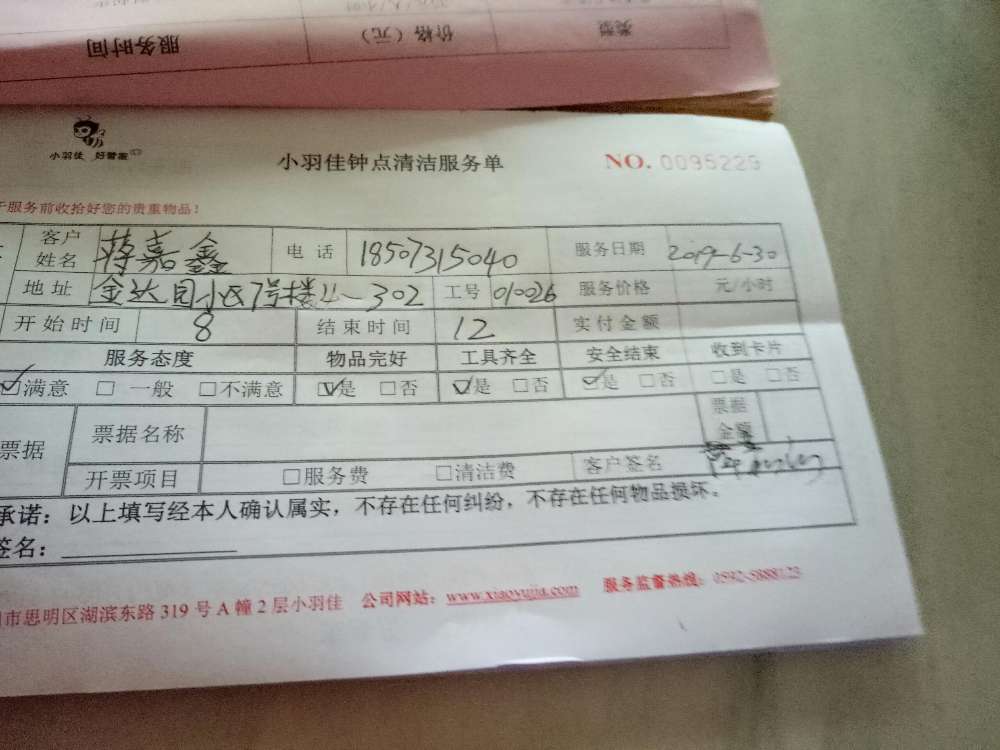 类型 价格（元） 服务时间
小羽佳 好管家
小羽佳钟点清洁服务单 NO. 0095229
于服务前收拾好您的贵重物品！
客户姓名 蒋嘉鑫 电话 18507315040 服务日期 2019-6-30
地址 金达园小区7号楼 302 工号 010026 服务价格 元/小时
开始时间 8 结束时间 12 实付金额
服务态度 物品完好 工具齐全 安全结束 收到卡片
☑满意 □一般 □不满意 ☑是 □否 ☑是 □否 ☑是 □否 □是 □否
票据 票据名称 票据金额
开票项目 □服务费 □清洁费 客户签名
承诺：以上填写经本人确认属实，不存在任何纠纷，不存在任何物品损坏。
签名：
市思明区湖滨东路319号A幢2层小羽佳 公司网站：www.xiaoyujia.com 服务监督热线：0592-5888123